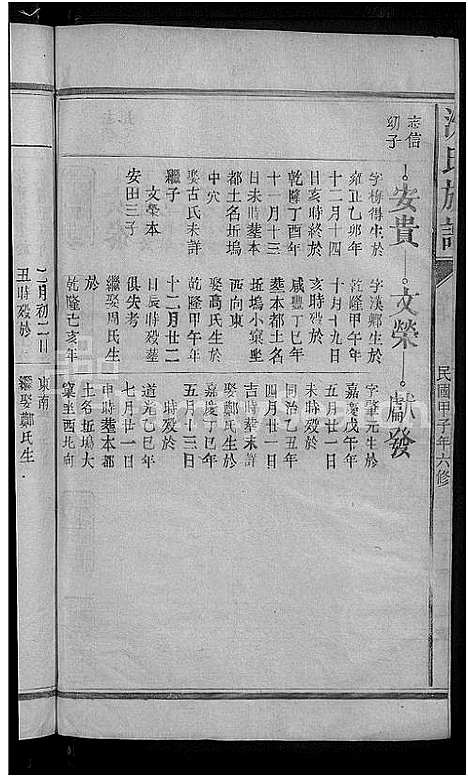 氏族譜
民國甲子年六修
志信
幼子
安貴
字梅得生於
雍正乙卯年
十二月十四
日亥時終於
乾隆丁酉年
十一月十三
日未時塟本
都土名折塢
中穴
娶古氏未詳
繼子
文榮本
安田三子
文榮
字漢鄉生於
乾隆甲午年
十月十九日
亥時歿於
咸豐丁巳年
塟本都土名
折塢小窠坐
西向東
娶高氏生於
乾隆甲午年
十二月廿二
日辰時歿塟
俱失考
繼娶周氏生
於
乾隆己亥年
二月初二日
丑時歿於
獻發
字肇元生於
嘉慶戊午年
五月廿一日
未時歿於
同治乙丑年
四月廿一日
吉時塟未詳
娶鄭氏生於
嘉慶丁巳年
五月十三日
時歿於
道光乙巳年
七月廿一日
申時塟本都
土名折塢大
窠坐西北向
東南
繼娶鄭氏生